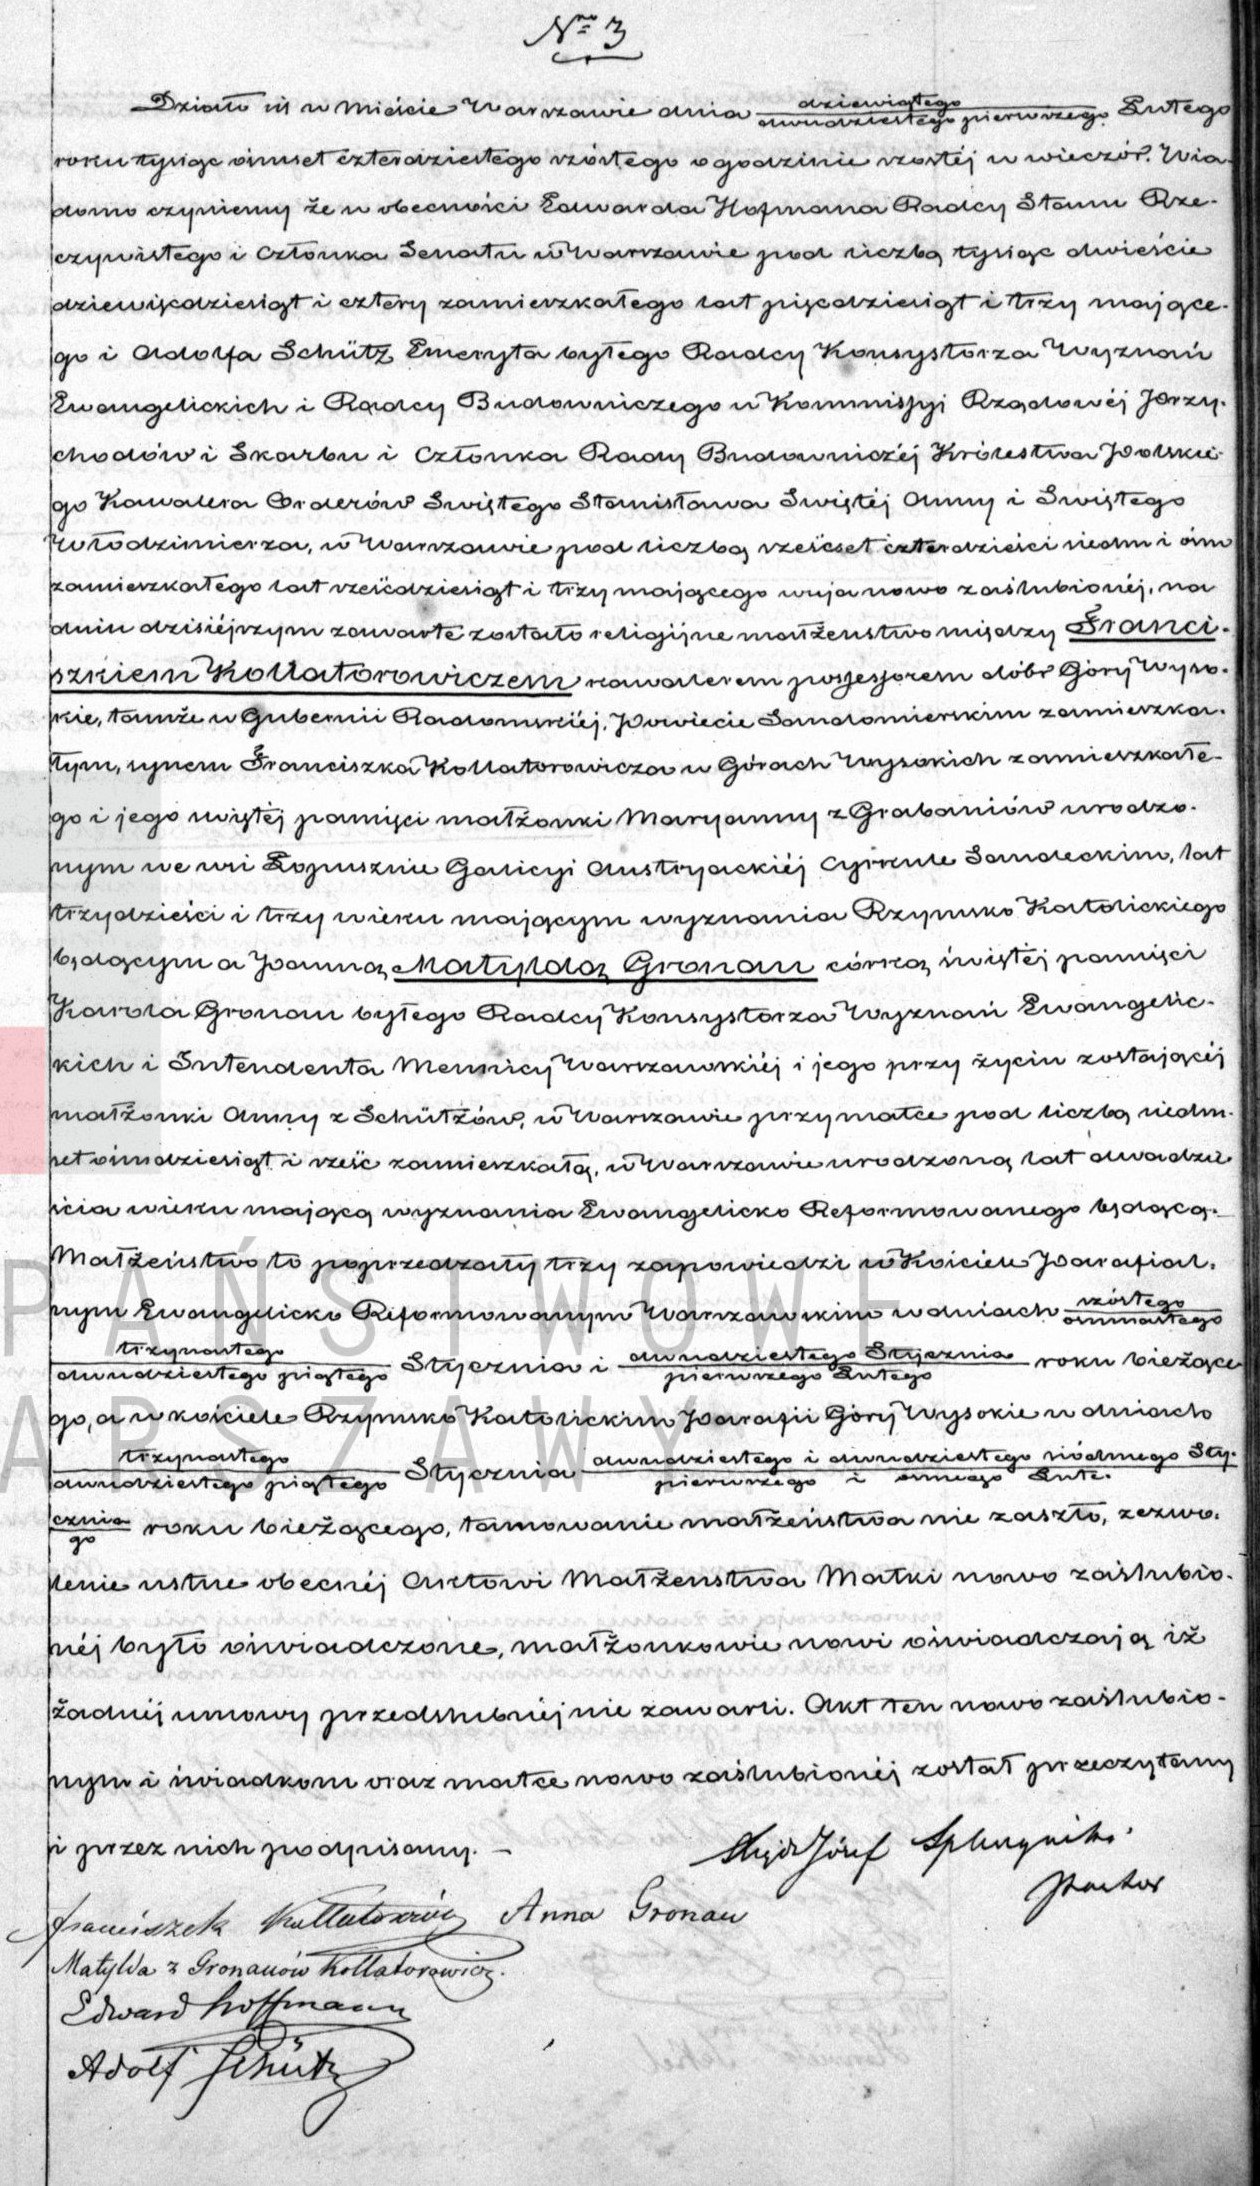 Nro 3
Działo się w Mieście Warszawie dnia dziewiątego / dwudziestego pierwszego Lutego
roku tysiąc ośmset czterdziestego szóstego o godzinie szóstéj w wieczór. Wia-
domo czyniemy że w obecności Edwarda Hofmana Radcy Stanu Rze-
czywistego i Członka Senatu w Warszawie pod liczbą tysiąc dwieście
dziewięćdziesiąt i cztery zamieszkałego lat pięćdziesiąt i trzy mające-
go i Adolfa Schütz Emeryta byłego Radcy Konsystorza Wyznań
Ewangelickich i Radcy Budowniczego w Kommissyi Rządowéj Przy-
chodów i Skarbu i Członka Rady Budowniczéj Królestwa Polskie-
go Kawalera Orderów Swiętego Stanisława Swiętéj Anny i Swiętego
Włodzimierza, w Warszawie pod liczbą sześćset czterdzieści siedm i ośm
zamieszkałego lat sześćdziesiąt i trzy mającego wuja nowo zaślubionéj, na
dniu dzisiéjszym zawarte zostało religijne małżeństwo między Franci-
szkiem Kollatorowiczem kawalerem possessorem dóbr Góry Wyso-
kie, tamże w Gubernii Radomskiéj, Powiecie Sandomierskim zamieszka-
łym, synem Franciszka Kollatorowicza w Górach Wysokich zamieszkałe-
go i jego świętéj pamięci małżonki Maryanny z Grabaniów urodzo-
nym we wsi Łopusznie Galicyi Austryackiéj Cyrkule Sandeckim, lat
trzydzieści i trzy wieku mającym wyznania Rzymsko Katolickiego
będącym a Panną Matyldą Gronau córką świętéj pamięci
Karola Gronau byłego Radcy Konsystorza Wyznań Ewangelic-
kich i Intendenta Mennicy Warszawskiéj i jego przy życiu zostającéj
małżonki Anny z Schützów, w Warszawie przy matce pod liczbą siedm-
set ośmdziesiąt i sześć zamieszkałą, w Warszawie urodzoną lat dwadzie-
ścia wieku mającą wyznania Ewangelicko Reformowanego będącą.
Małżeństwo to poprzedzały trzy zapowiedzi w Kościele Parafial-
nym Ewangelicko Reformowanym Warszawskim w dniach szóstego / osmnastego
trzynastego / dwudziestego piątego Stycznia i dwudziestego Stycznia / pierwszego Lutego roku bieżące-
go, a w kościele Rzymsko Katolickim Parafii Góry Wysokie w dniach
trzynastego / dwudziestego piątego Stycznia dwudziestego i dwudziestego siódmego Sty- / pierwszego i osmego Lute-
cznia / go roku bieżącego, tamowanie małżeństwa nie zaszło, zezwo-
lenie ustne obecnéj Aktowi Małżenstwa Matki nowo zaślubio-
néj było oświadczone, małżonkowie nowi oświadczają iż
żadnéj umowy przedślubnéj nie zawarli. Akt ten nowo zaślubio-
nym i świadkom oraz matce nowo zaślubionéj został przeczytany
i przez nich podpisany. —
Xiądz Józef Spleszyński
Pastor
Franciszek Kollatorowicz Anna Gronau
Matylda z Gronauów Kollatorowicz.
Edward Hoffmann
Adolf Schütz
PAŃSTWOWE
ARSZAWY